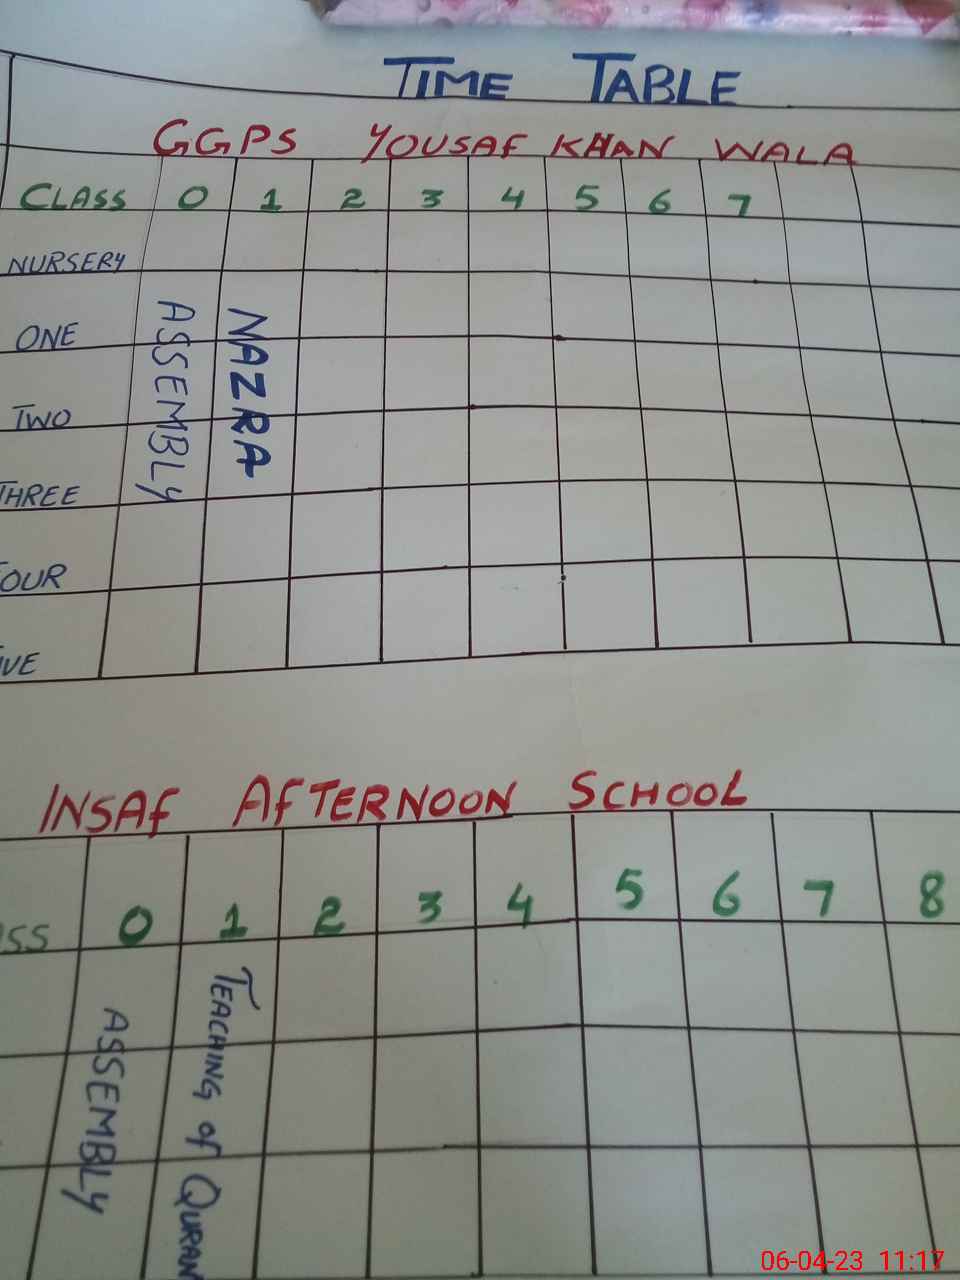 TIME TABLE
GGPS YOUSAF KHAN WALA
CLASS 0 1 2 3 4 5 6 7
NURSERY
ONE
TWO
THREE
OUR
IVE
ASSEMBLY
NAZRA
INSAF AFTERNOON SCHOOL
SS 0 1 2 3 4 5 6 7 8
ASSEMBLY
TEACHING of QURAN
06-04-23 11:17